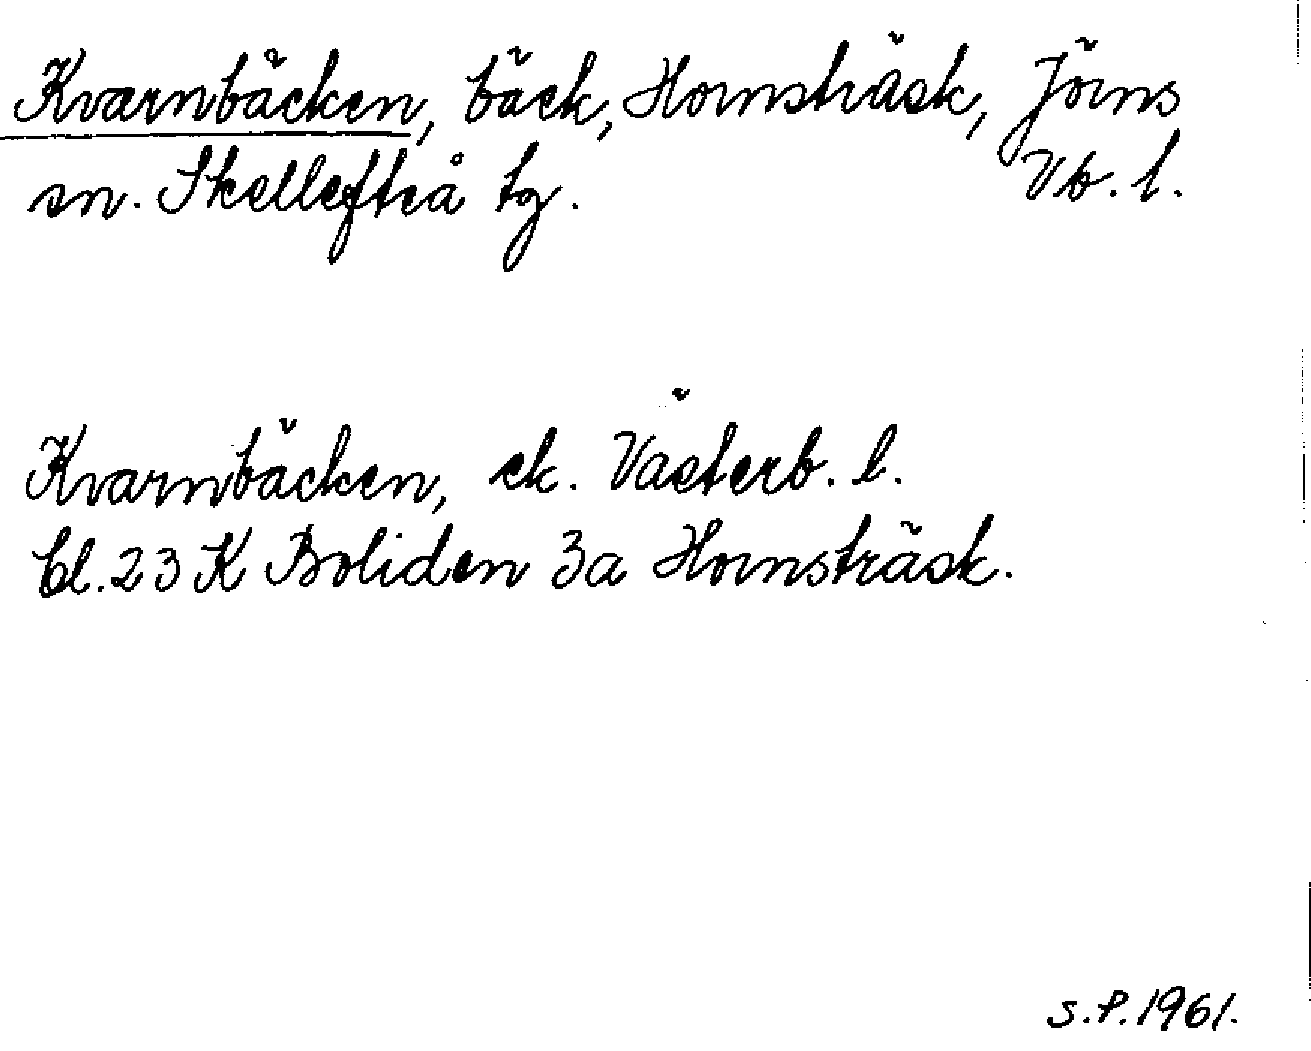 Kvarnbäcken, bäck, Hornsträsk, Jörns
sn. Skellefteå tg. Vb. l.
Kvarnbäcken, ek. Västerb. l.
bl. 23 K Boliden 3a Hornsträsk.
S.P. 1961.